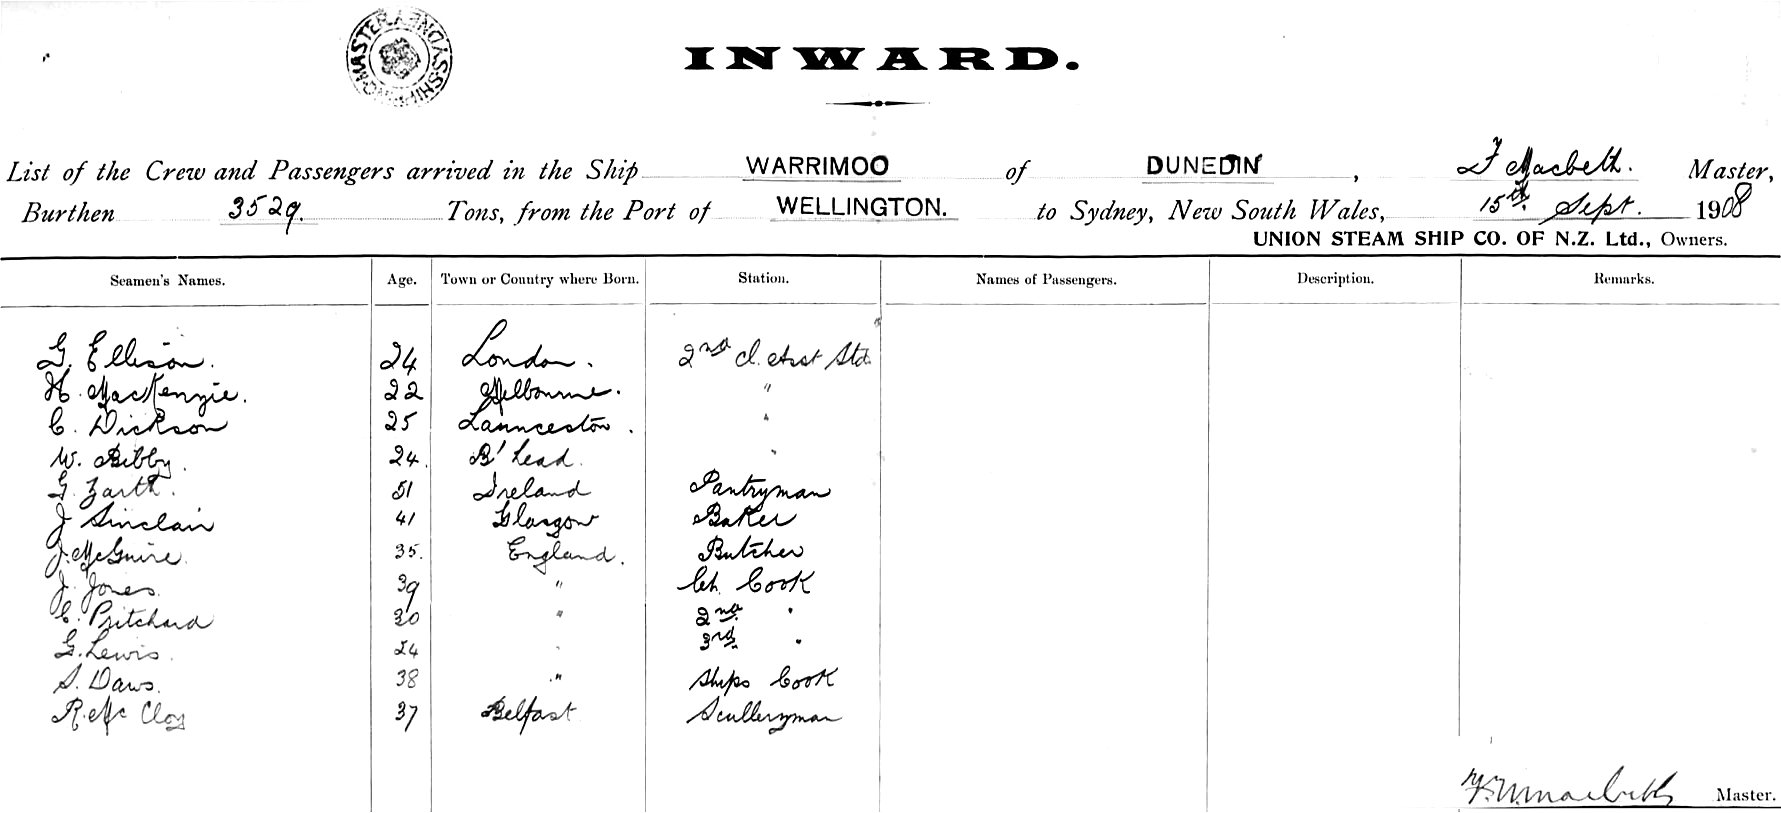 SHIPPING MASTER SYDNEY
INWARD.
List of the Crew and Passengers arrived in the Ship WARRIMOO of DUNEDIN, F Macbeth. Master,
Burthen 3529. Tons, from the Port of WELLINGTON. to Sydney, New South Wales, 15th Sept. 1908
UNION STEAM SHIP CO. OF N.Z. Ltd., Owners.
Seamen's Names. Age. Town or Country where Born. Station. Names of Passengers. Description. Remarks.
G. Ellison. 24 London. 2nd Cl. Asst Std.
H. MacKenzie. 22 Melbourne. "
C. Dickson 25 Launceston. "
W. Bibby. 24. B'head. "
G. Zarth. 51 Ireland Pantryman
J Sinclair 41 Glasgow Baker
J. McGuire. 35. England. Butcher
J. Jones. 39 " Ch. Cook
C. Pritchard 30 " 2nd "
G. Lewis. 24 " 3rd "
S. Daws. 38 " Ships Cook
R. Mc Cloy 37 Belfast Sculleryman
Macbeth Master.